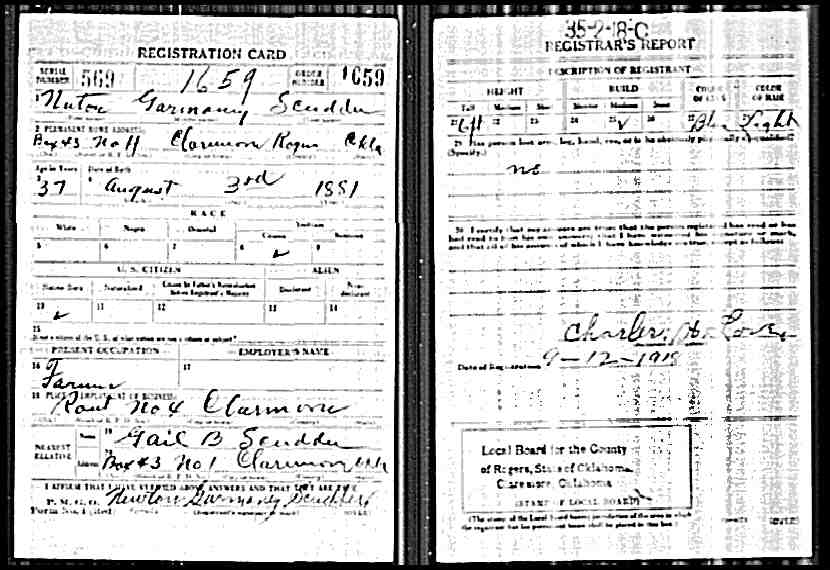 REGISTRATION CARD
SERIAL NUMBER 569 1659 ORDER NUMBER 1659
1 Nuton Garmany Scudder
2 PERMANENT HOME ADDRESS:
Box 43 No 4 Claremore Rogers Okla
Age in Years Date of Birth
3 37 4 August 3rd 1881
RACE
White Negro Oriental Indian
Citizen Noncitizen
5 6 7 8 ✓ 9
U. S. CITIZEN ALIEN
Native Born Naturalized Citizen by Father's Naturalization Before Registrant's Majority Declarant Non-declarant
10 ✓ 11 12 13 14
15
If not a citizen of the U. S., of what nation are you a citizen or subject?
PRESENT OCCUPATION EMPLOYER'S NAME
16 Farmer 17
18 PLACE OF EMPLOYMENT OR BUSINESS:
Rout No 4 Claremore
NEAREST RELATIVE Name 19 Gail B Scudder
Address 20 Box 43 No 1 Claremore Okla
I AFFIRM THAT I HAVE VERIFIED ABOVE ANSWERS AND THAT THEY ARE TRUE
P. M. G. O.
Form No. 1 (Red) Newton Garmany Scudder
35-2-18-C
REGISTRAR'S REPORT
DESCRIPTION OF REGISTRANT
HEIGHT BUILD COLOR OF EYES COLOR OF HAIR
Tall Medium Short Slender Medium Stout
21 22 23 24 25 ✓ 26 27 Blue Light
29 Has person lost arm, leg, hand, eye, or is he obviously physically disqualified?
(Specify.)
no
30 I certify that my answers are true; that the person registered has read or has
had read to him his own answers; that I have witnessed his signature or mark,
and that all of his answers of which I have knowledge are true, except as follows:
Charles H.
Date of Registration 9-12-1918
Local Board for the County
of Rogers, State of Oklahoma.
Claremore, Oklahoma
(STAMP OF LOCAL BOARD)
(The stamp of the Local Board having jurisdiction of the area in which
the registrant has his permanent home shall be placed in this box.)